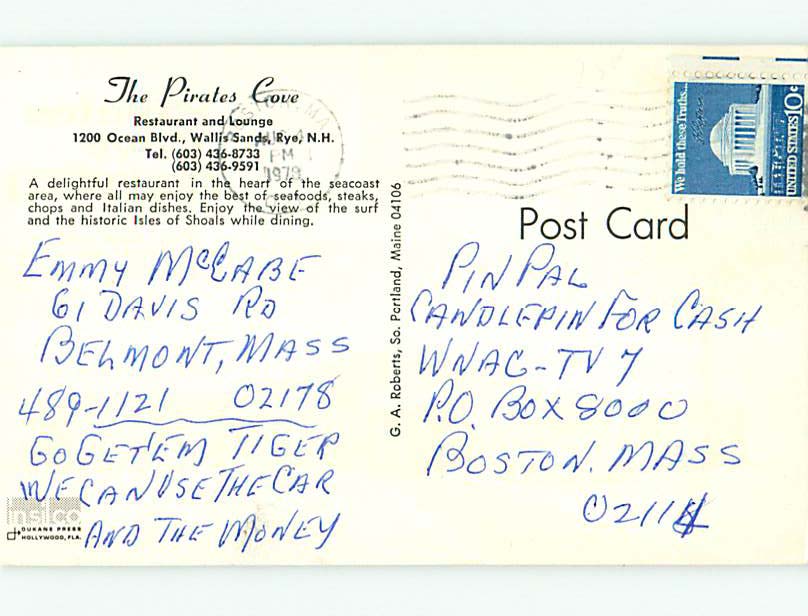 The Pirates Cove
Restaurant and Lounge
1200 Ocean Blvd., Wallis Sands, Rye, N.H.
Tel. (603) 436-8733
(603) 436-9591
A delightful restaurant in the heart of the seacoast
area, where all may enjoy the best of seafoods, steaks,
chops and Italian dishes. Enjoy the view of the surf
and the historic Isles of Shoals while dining.
EMMY McCABE
61 DAVIS RD
BELMONT, MASS
489-1121 02178
GO GET'EM TIGER
WE CAN USE THE CAR
AND THE MONEY
insico
DUKANE PRESS
HOLLYWOOD, FLA.
G. A. Roberts, So. Portland, Maine 04106
MA
PM
1979
We hold these Truths...
UNITED STATES 10c
Post Card
PIN PAL
CANDLEPIN FOR CASH
WNAC-TV 7
P.O. BOX 8000
BOSTON. MASS
02114